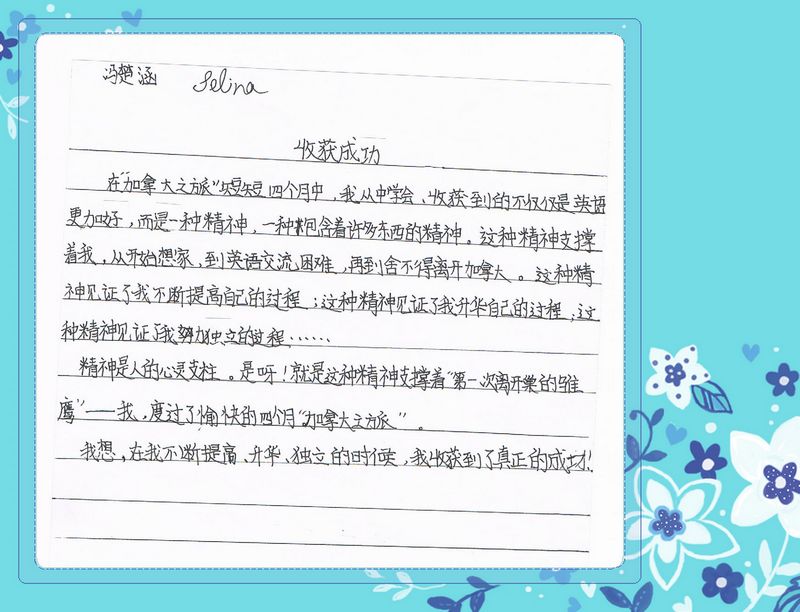 冯楚涵 Selina
收获成功
在"加拿大之旅"短短四个月中，我从中学会、收获到的不仅仅是英语
更加好，而是一种精神，一种包含着许多东西的精神。这种精神支撑
着我，从开始想家，到英语交流困难，再到舍不得离开加拿大。这种精
神见证了我不断提高自己的过程；这种精神见证了我升华自己的过程，这
种精神见证了我努力独立的过程……
精神是人的心灵支柱。是呀！就是这种精神支撑着"第一次离开巢的雏
鹰"——我，度过了愉快的四个月"加拿大之旅"。
我想，在我不断提高、升华、独立的时候，我收获到了真正的成功！